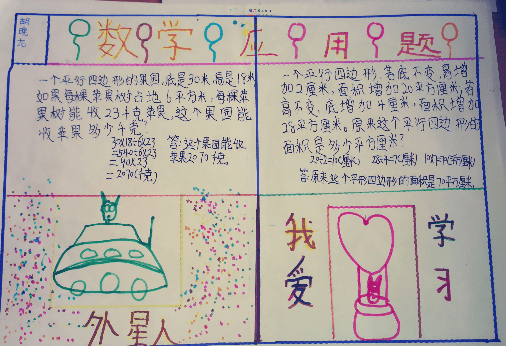 数学应用题
一个平行四边形的果园,底是30米,高是18米
如果每棵苹果树占地6平方米,每棵苹
果树能收23千克苹果,这个果园能
收苹果多少千克?
30×18÷6×23
=540÷6×23
=90×23
=2070(千克)
答:这个果园能收
苹果2070千克。
一个平行四边形,若底不变,高增
加2厘米,面积增加20平方厘米,若
高不变,底增加4厘米,面积增加
28平方厘米。原来这个平行四边形的
面积是多少平方厘米?
20÷2=10(厘米) 28÷4=7(厘米) 10×7=70(平方厘米)
答:原来这个平行四边形的面积是70平方厘米。
外星人
我爱
学习